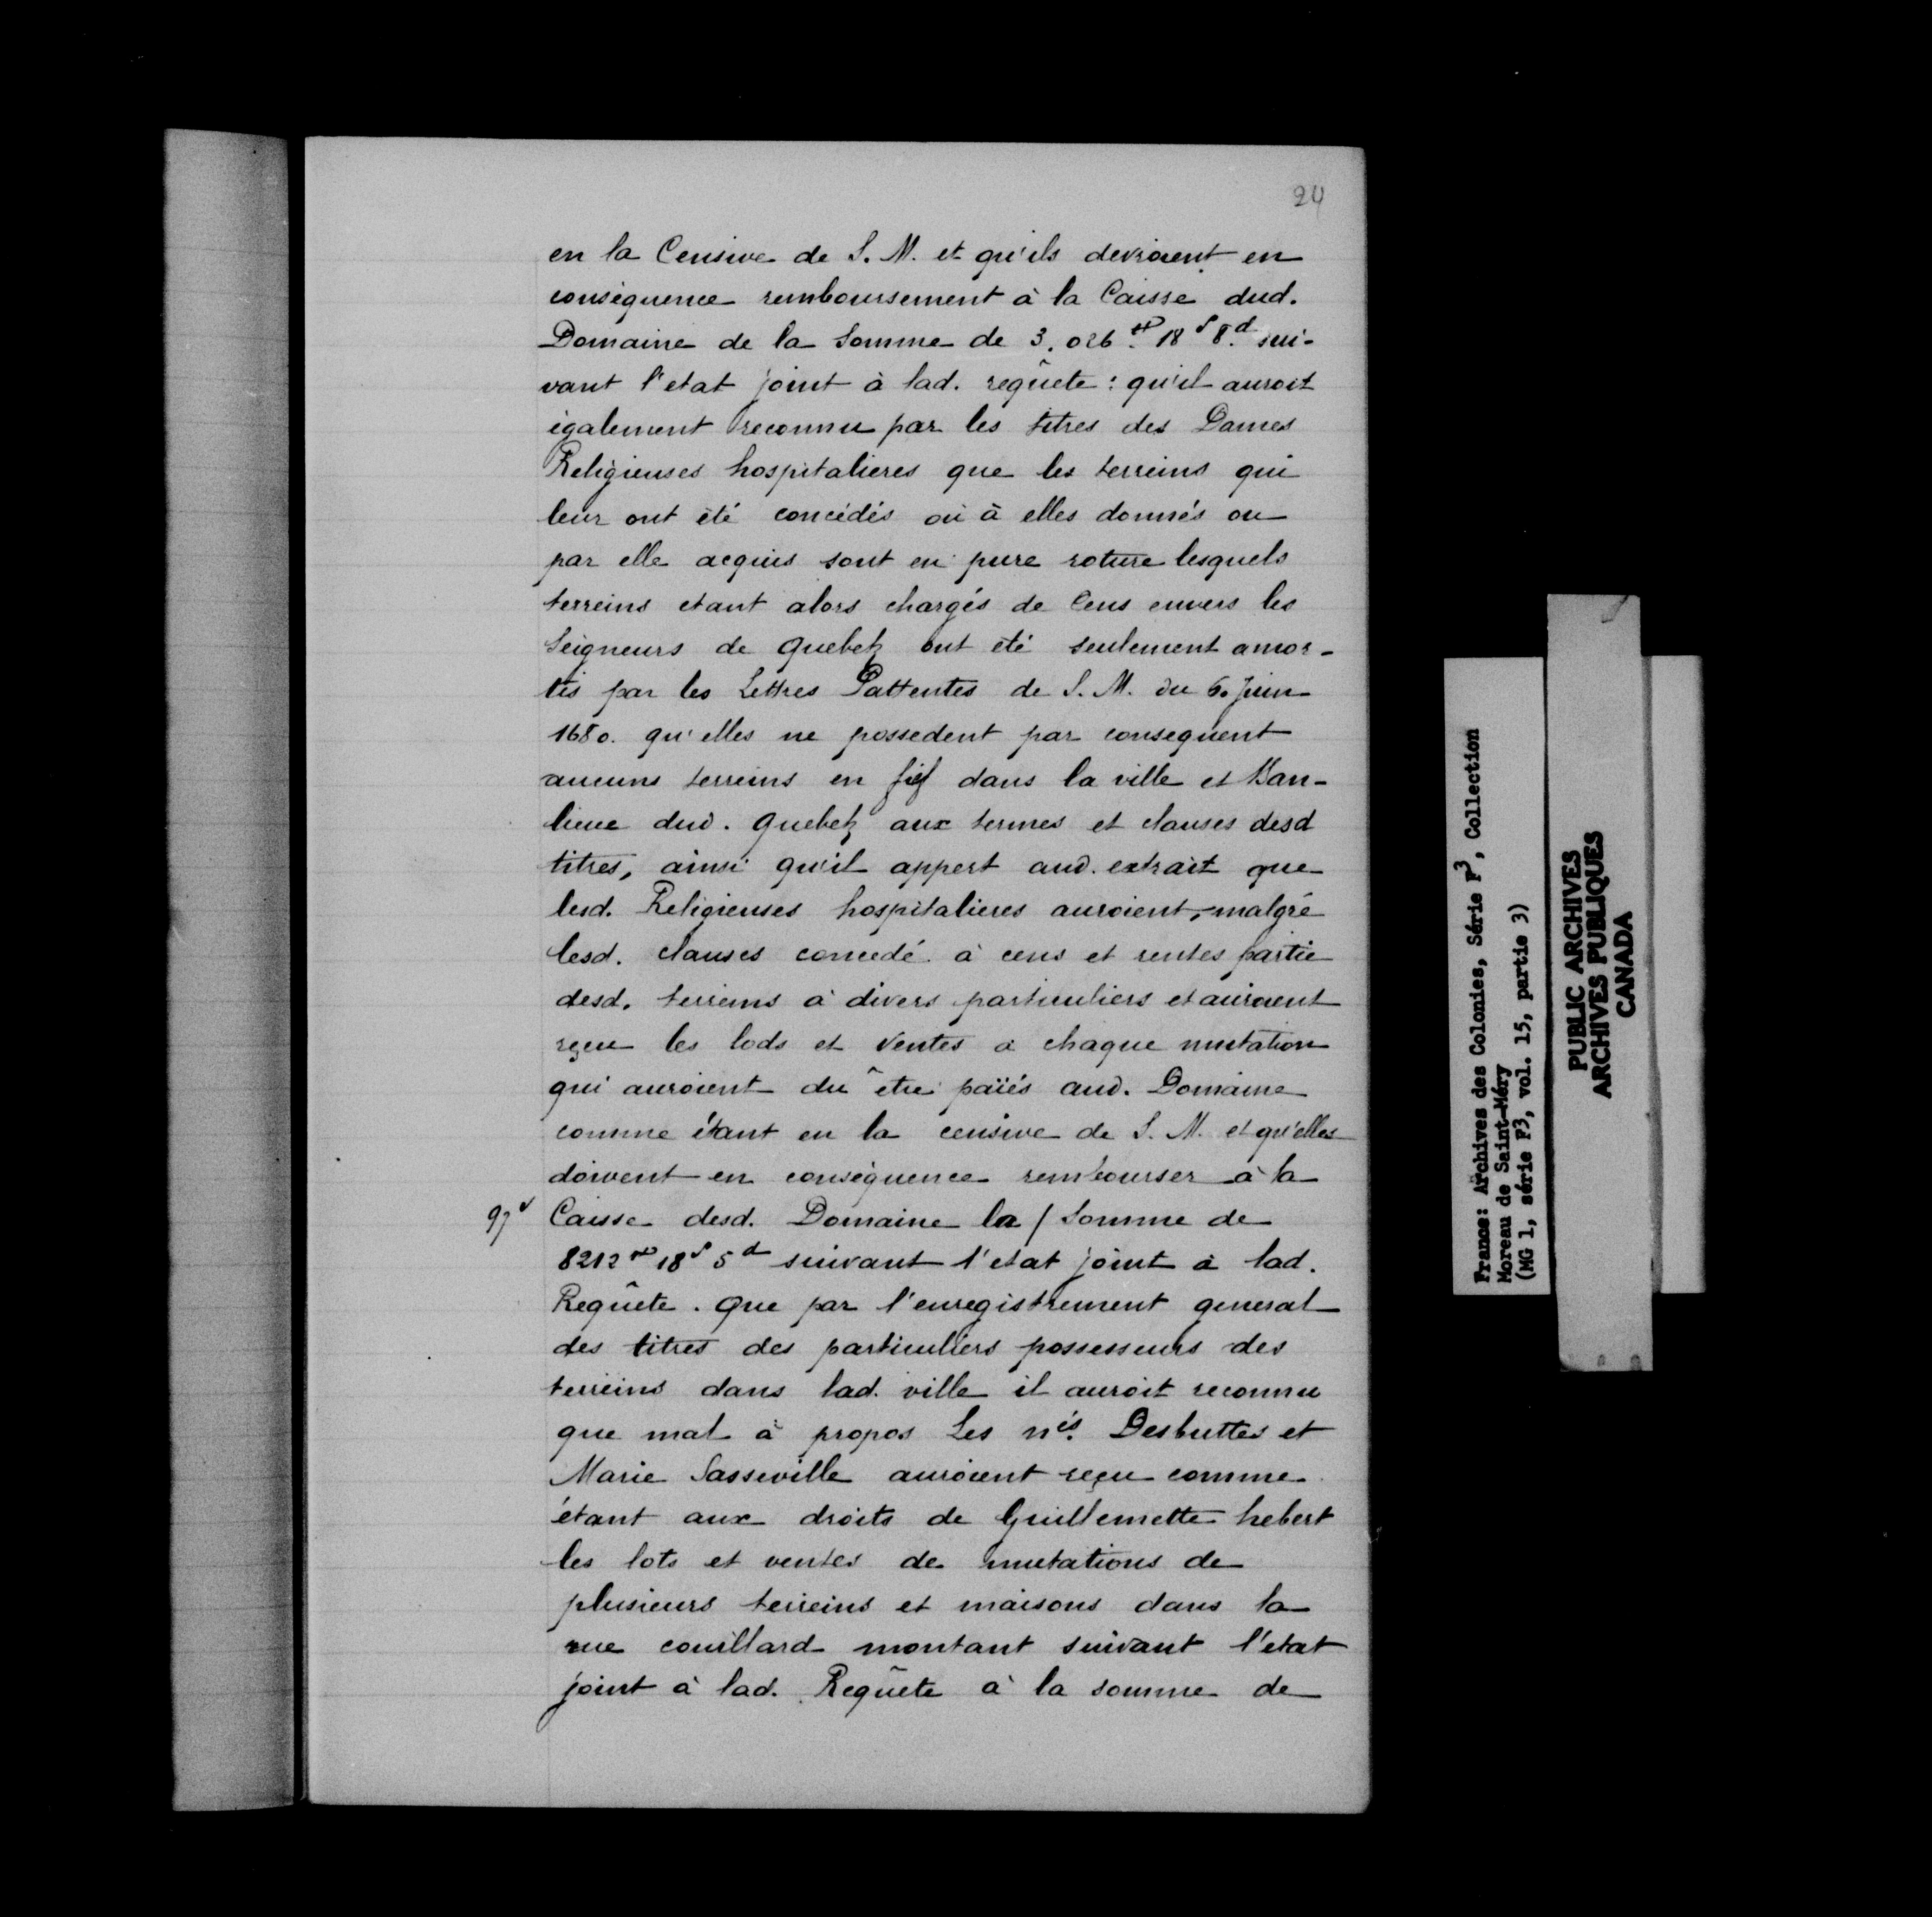 24
en la Censive de S. M. et qu'ils devroient en
conséquence remboursement à la Caisse dud.
Domaine de la Somme de 3.026.ᵗᵗ 18ˢ 8.ᵈ sui-
vant l'etat joint à lad. reqûete : qu'il auroit
également reconnu par les titres des Dames
Religieuses hospitalieres que les terreins qui
leur ont été concédés où à elles donnés ou
par elle acquis sont en pure roture lesquels
terreins etant alors chargés de Cens envers les
Seigneurs de Quebek ont été seulement amor-
tis par les Lettres Pattentes de S. M. du 6. Juin
1680. qu'elles ne possedent par consequent
aucuns terreins en fief dans la ville et Ban-
lieue dud. Quebek aux termes et clauses desd
titres, ainsi qu'il appert aud. extrait que
lesd. Religieuses hospitalieres auroient, malgré
lesd. clauses concedé à cens et rentes partie
desd. terreins à divers particuliers et auroient
reçu les lods et Ventes à chaque mutation
qui auroient du être païés aud. Domaine
comme étant en la censive de S. M. et qu'elles
doivent en conséquence rembourser à la
97ᵛ Caisse desd. Domaine la / Somme de
8212ᵗᵗ 18ˢ 5ᵈ suivant l'etat joint à lad.
Reqûete. Que par l'enregistrement general
des titres des particuliers possesseurs des
terreins dans lad. ville il auroit reconnu
que mal à propos Les nés. Desbuttes et
Marie Sasseville auroient reçu comme
étant aux droits de Guillemette hebert
les lots et ventes de mutations de
plusieurs terreins et maisons dans la
rue couillard montant suivant l'etat
joint à lad. Reqûete à la somme de
France: Archives des Colonies, Série F³, Collection
Moreau de Saint-Méry
(MG 1, série F3, vol. 15, partie 3)
PUBLIC ARCHIVES
ARCHIVES PUBLIQUES
CANADA